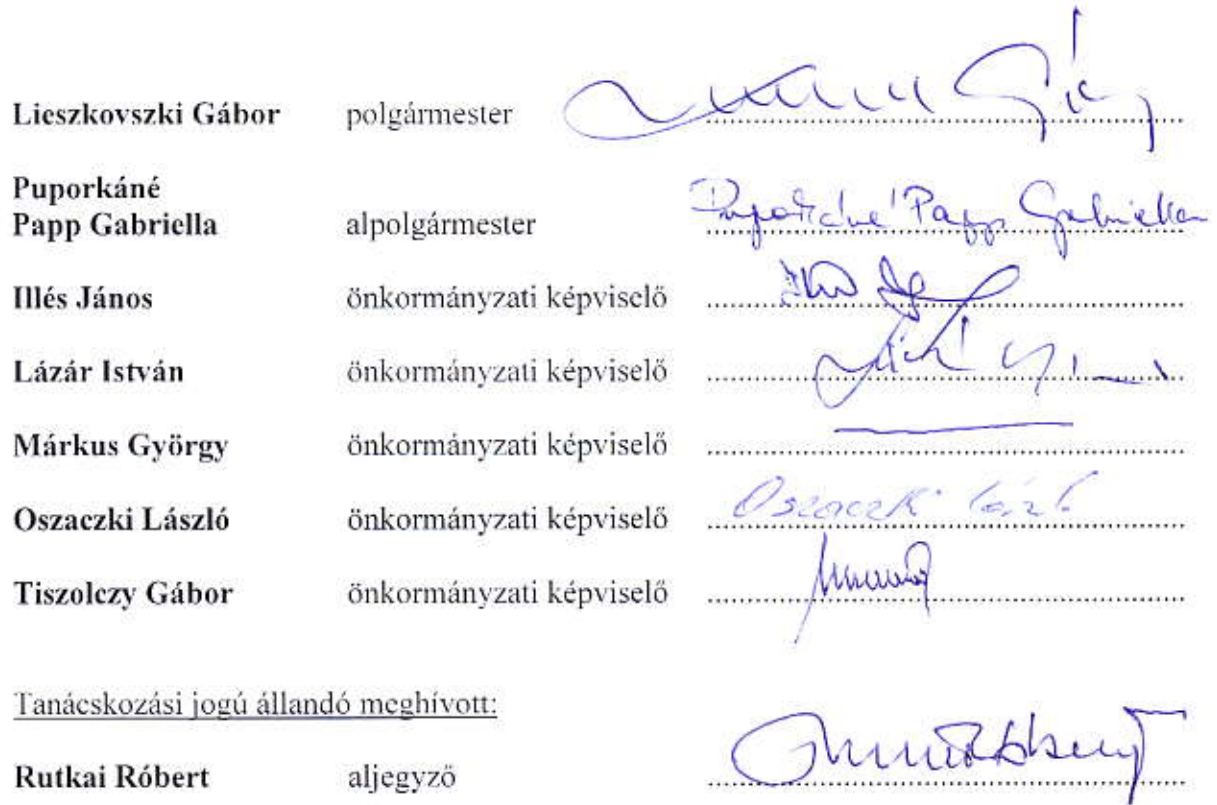 Lieszkovszki Gábor polgármester
Puporkáné
Papp Gabriella alpolgármester Puporkáné Papp Gabriella
Illés János önkormányzati képviselő
Lázár István önkormányzati képviselő
Márkus György önkormányzati képviselő
Oszaczki László önkormányzati képviselő Oszaczki László
Tiszolczy Gábor önkormányzati képviselő
Tanácskozási jogú állandó meghívott:
Rutkai Róbert aljegyző